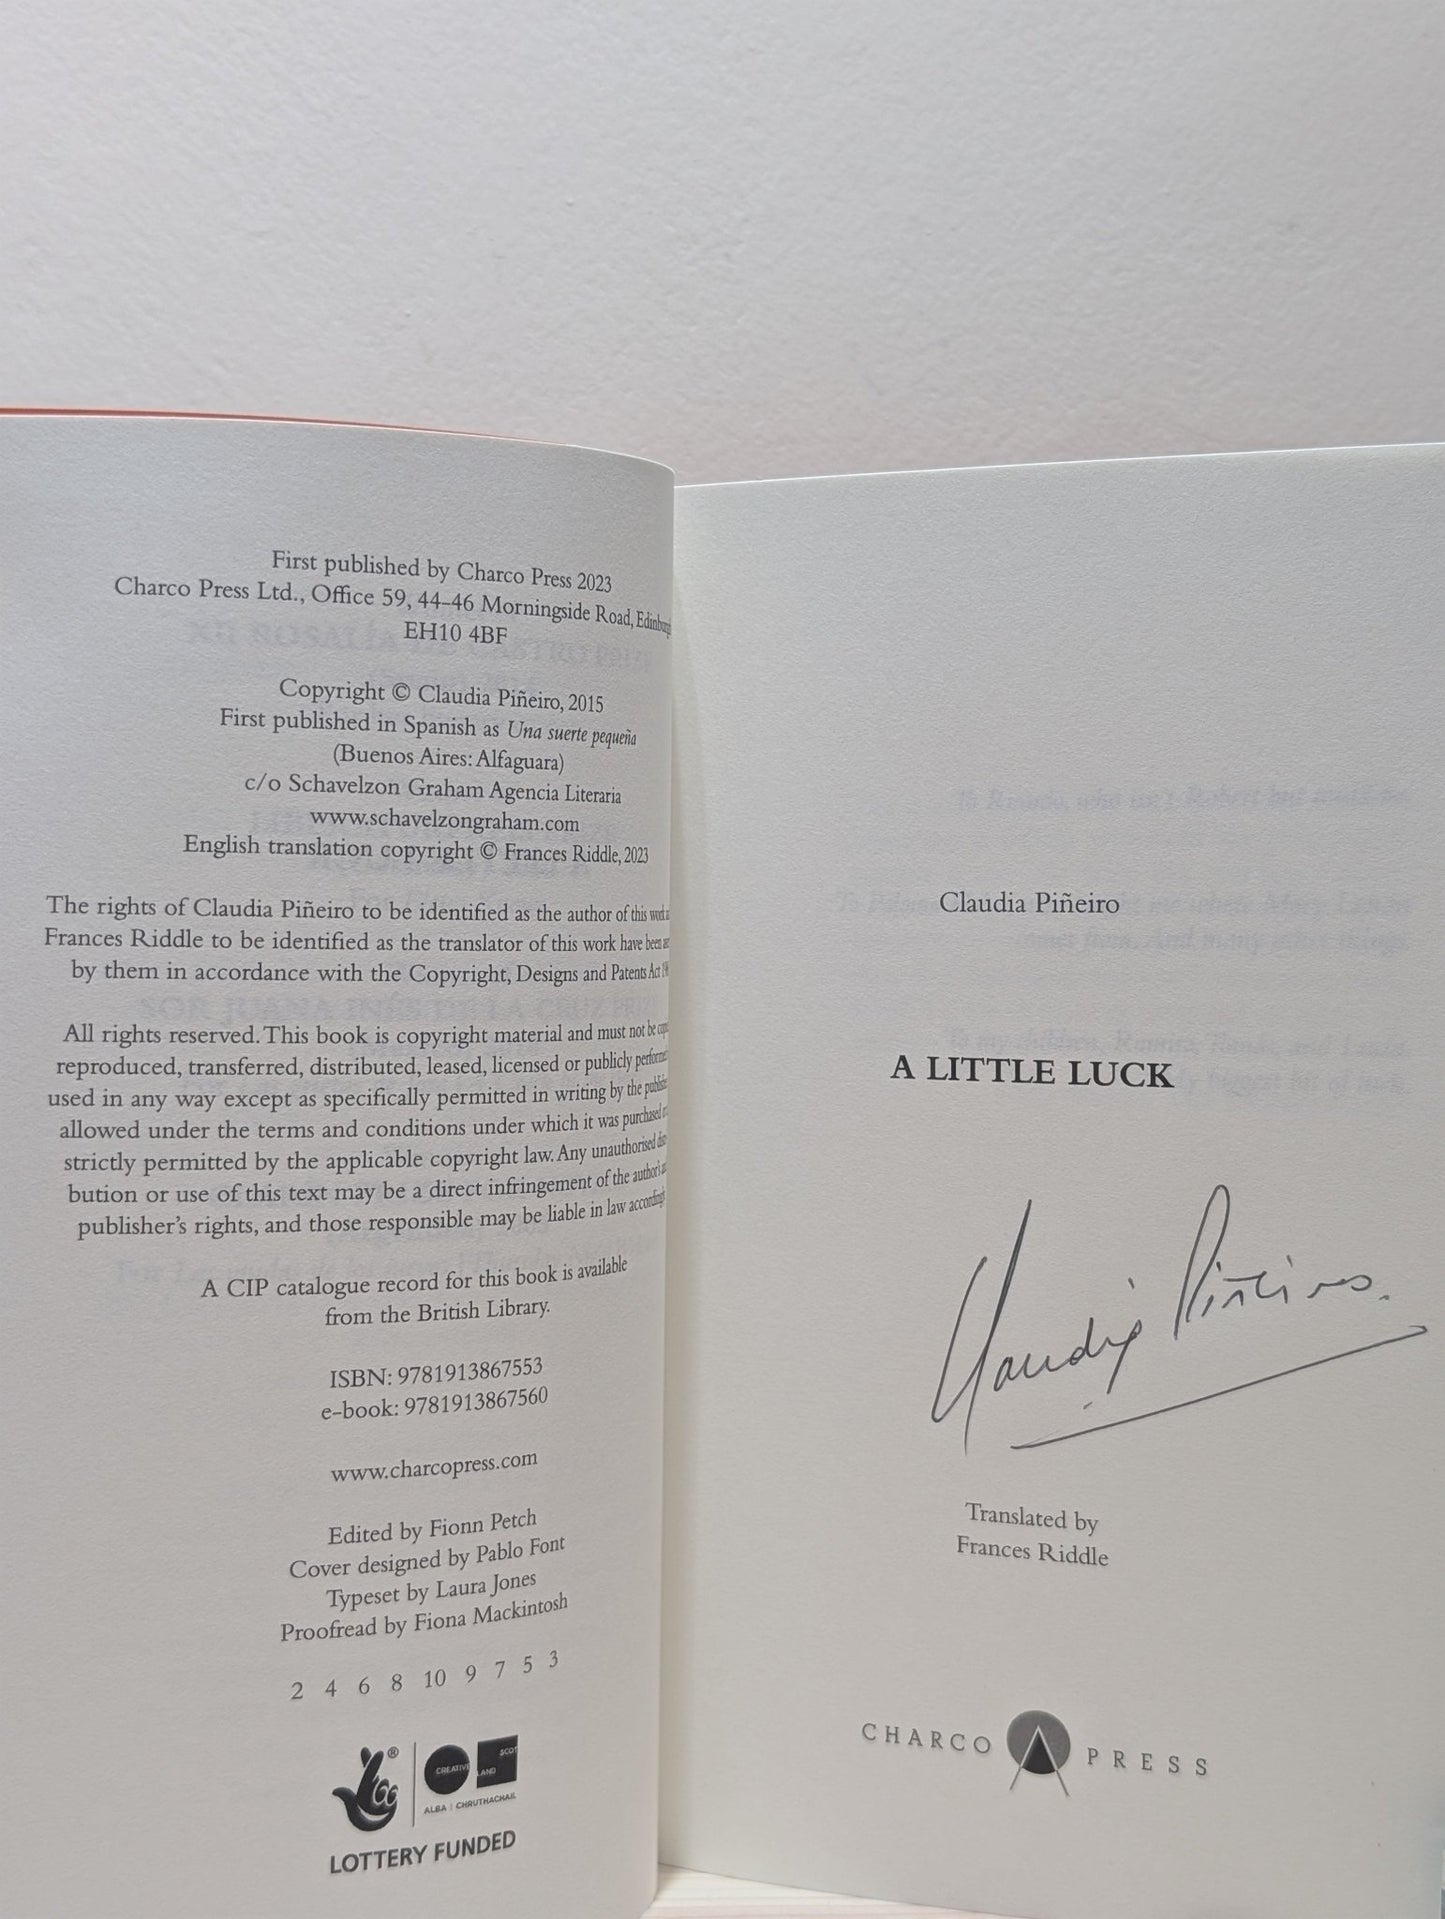 First published by Charco Press 2023
Charco Press Ltd., Office 59, 44–46 Morningside Road,
EH10 4BF
Copyright © Claudia Piñeiro, 2015
First published in Spanish as Una suerte pequeña
(Buenos Aires: Alfaguara)
c/o Schavelzon Graham Agencia Literaria
www.schavelzongraham.com
English translation copyright © Frances Riddle, 2023
The rights of Claudia Piñeiro to be identified as the author of this work
Frances Riddle to be identified as the translator of this work have been
by them in accordance with the Copyright, Designs and Patents Act
All rights reserved. This book is copyright material and must not be
reproduced, transferred, distributed, leased, licensed or publicly
used in any way except as specifically permitted in writing by the
allowed under the terms and conditions under which it was purchased
strictly permitted by the applicable copyright law. Any unauthorised
bution or use of this text may be a direct infringement of the author's
publisher's rights, and those responsible may be liable in law
A CIP catalogue record for this book is available
from the British Library.
ISBN: 9781913867553
e-book: 9781913867560
www.charcopress.com
Edited by Fionn Petch
Cover designed by Pablo Font
Typeset by Laura Jones
Proofread by Fiona Mackintosh
2 4 6 8 10 9 7 5 3
CREATIVE SCOT
LAND
ALBA | CHRUTHACHAIL
LOTTERY FUNDED
Claudia Piñeiro
A LITTLE LUCK
Claudia Piñeiro.
Translated by
Frances Riddle
CHARCO PRESS